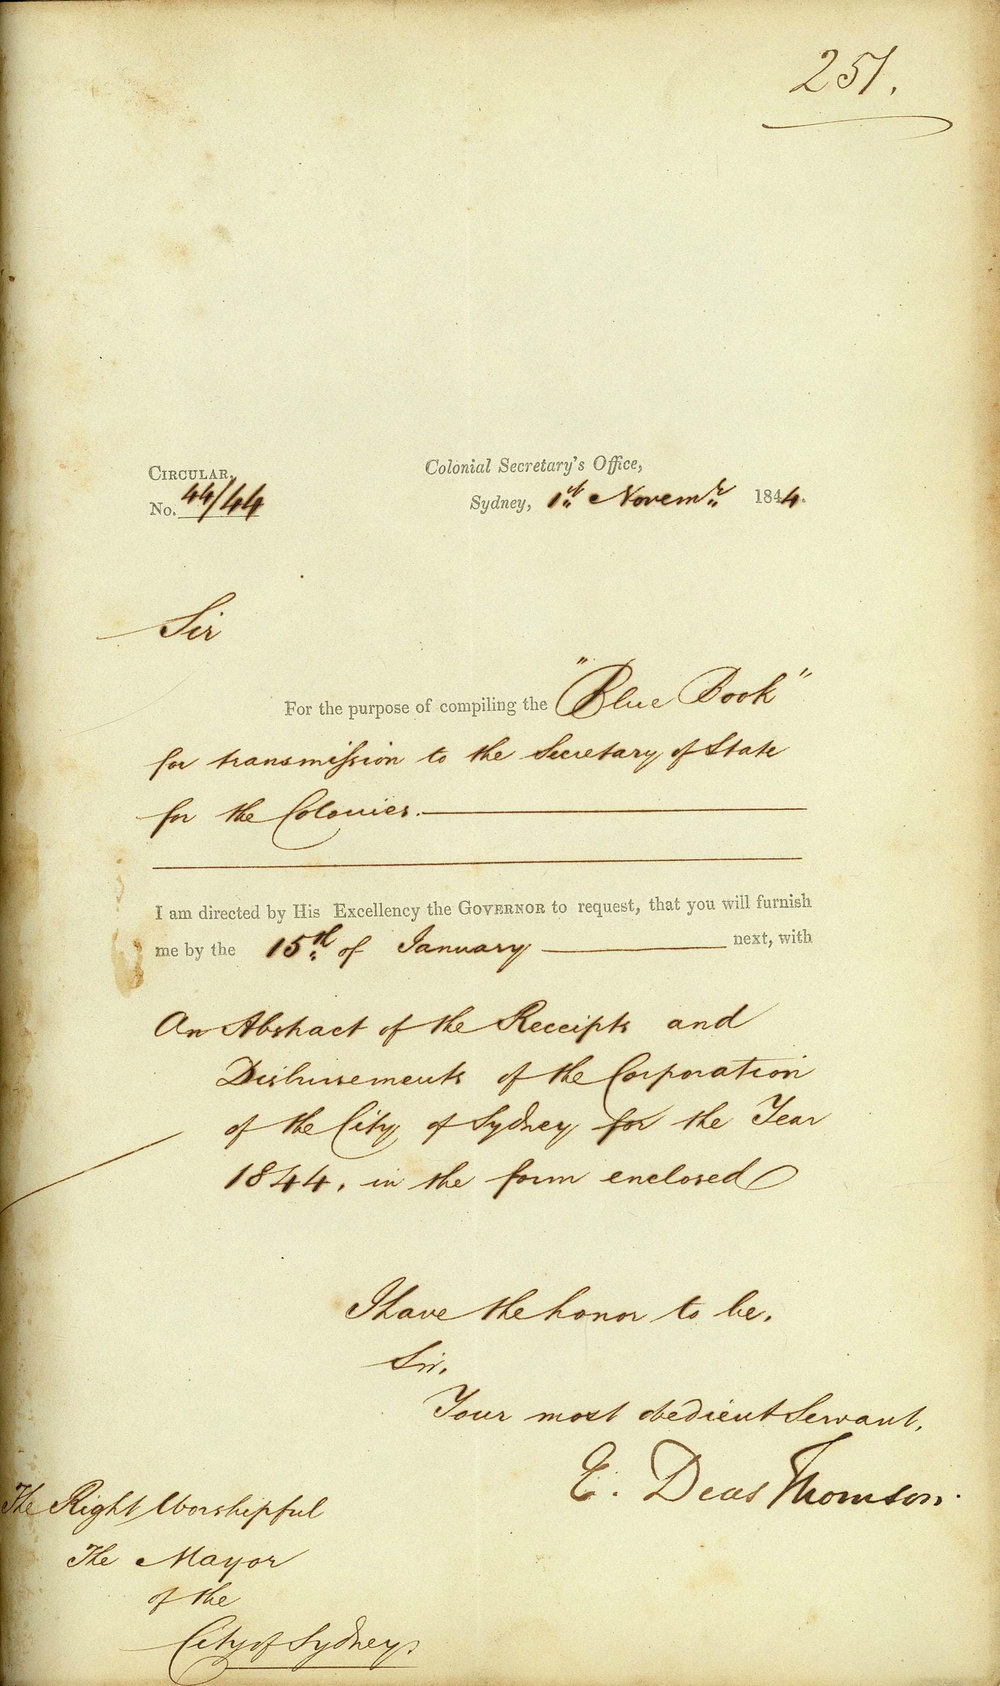 251.
CIRCULAR.
No. 44/44
Colonial Secretary's Office,
Sydney, 1st Novemr 1844.
Sir
For the purpose of compiling the "Blue Book"
for transmission to the Secretary of State
for the Colonies.
I am directed by His Excellency the GOVERNOR to request, that you will furnish
me by the 15th of January next, with
An Abstract of the Receipts and
Disbursements of the Corporation
of the City of Sydney for the Year
1844, in the form enclosed
I have the honor to be,
Sir,
Your most obedient Servant,
E. Deas Thomson.
The Right Worshipful
The Mayor
of the
City of Sydney.